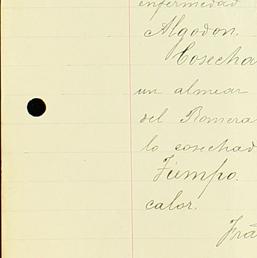 enfermedad
Algodon.
Cosecha
un almear
del Romera
lo cosechad
Tiempo.
calor.